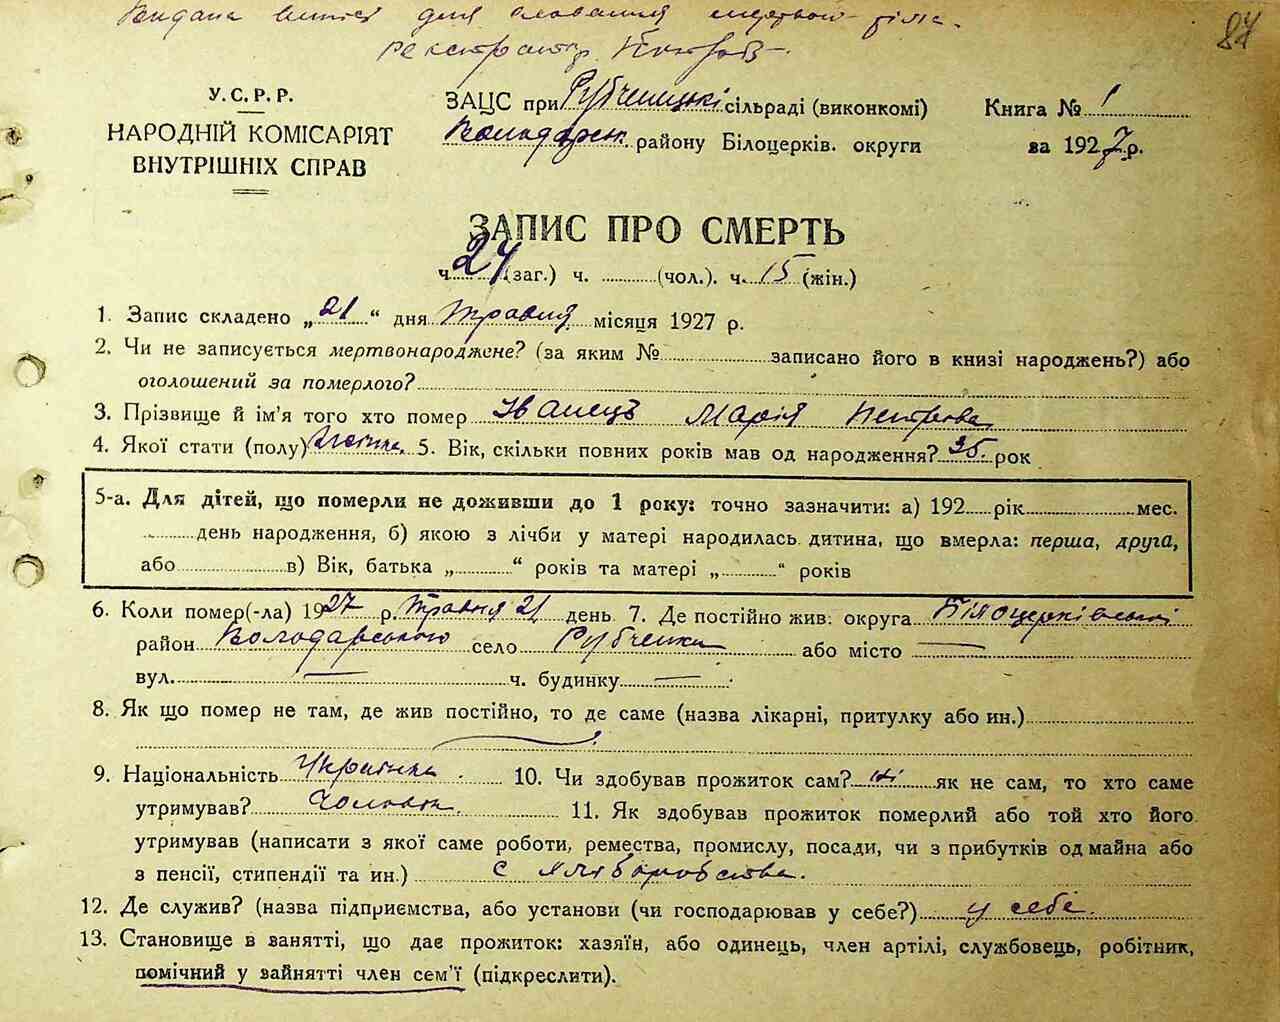 Видана виписъ для ховання мертвого тіла.
87
У.С.Р.Р.
НАРОДНІЙ КОМІСАРІЯТ
ВНУТРІШНІХ СПРАВ
ЗАЦС при Рубченській сільраді (виконкомі)
Володарськ району Білоцерків. округи
Книга № 1
за 1927 р.
ЗАПИС ПРО СМЕРТЬ
ч. 27 (заг.) ч. (чол.). ч. 15 (жін.)
1. Запис складено „21“ дня травня місяця 1927 р.
2. Чи не записується мертвонароджене? (за яким № записано його в книзі народжень?) або
оголошений за померлого?
3. Прізвище й ім'я того хто помер Іванець Марія Петрова
4. Якої статі (полу) Жіночa. 5. Вік, скільки повних років мав од народження? 35. рок
5-а. Для дітей, що померли не доживши до 1 року: точно зазначити: а) 192 рік мес.
день народження, б) якою з лічби у матері народилась дитина, що вмерла: перша, друга,
або в) Вік, батька „ “ років та матері „ “ років
6. Коли помер(-ла) 1927 р. Травня 21 день 7. Де постійно жив: округа Білоцерківській
район Володарського село Рубченки або місто —
вул. — ч. будинку —
8. Як що помер не там, де жив постійно, то де саме (назва лікарні, притулку або ин.)
9. Національність Українка 10. Чи здобував прожиток сам? ні як не сам, то хто саме
утримував? Чоловік. 11. Як здобував прожиток померлий або той хто його
утримував (написати з якої саме роботи, ремества, промислу, посади, чи з прибутків од майна або
з пенсії, стипендії та ин.) с хліборобства.
12. Де служив? (назва підприємства, або установи (чи господарював у себе?) у себе.
13. Становище в занятті, що дає прожиток: хазяїн, або одинець, член артілі, службовець, робітник,
помічний у зайнятті член сем'ї (підкреслити).